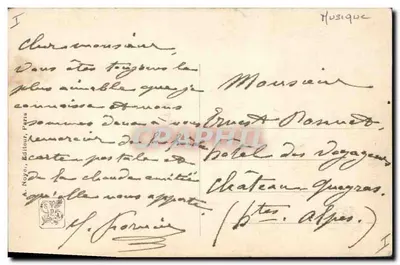 I
MUSIQUE
Cher monsieur,
Vous êtes toujours le
plus aimable que je
connaisse et nous
sommes deux à vous
remercier de la jolie
carte postale et
de la chaude amitié
qu'elle nous apporte.
Monsieur
Ernest Bonnet
hôtel des Voyageurs
Château Queyras
(Htes. Alpes)
A. Noyer, Éditeur, Paris
I